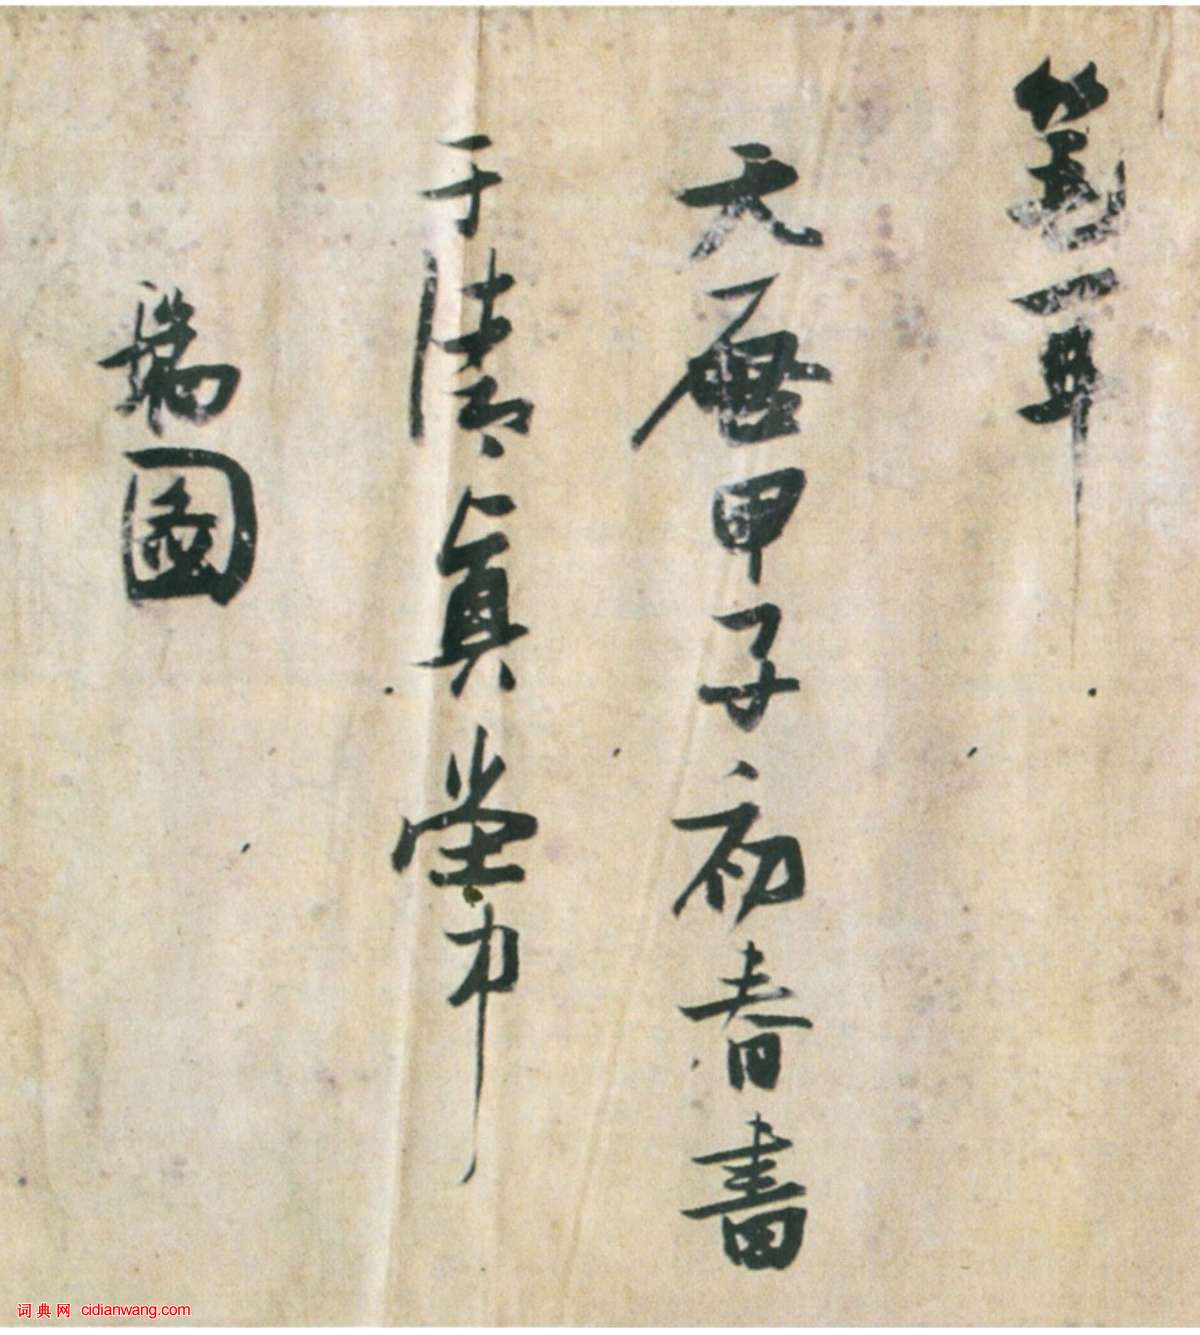 萬一耳
天啟甲子初春書
于清真堂中
瑞圖
词典网 cidianwang.com